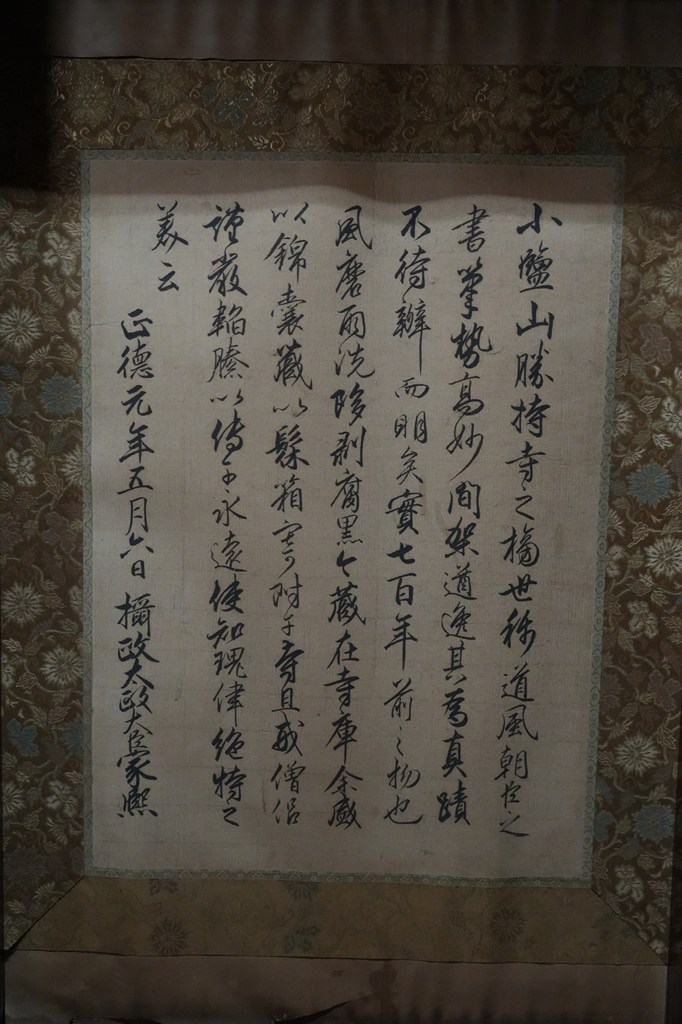 小鹽山勝持寺之榜世稱道風朝臣之
書筆勢高妙間架遒逸其為真蹟
不待辨而明矣實七百年前之物也
風磨雨洗 剥腐黒今藏在寺庫余
以錦囊藏以髹箱寄附于寺且戒僧侶
謹嚴韜縢以傳于永遠使知瑰偉絶特之
美云
正德元年五月六日攝政太政大臣家熈